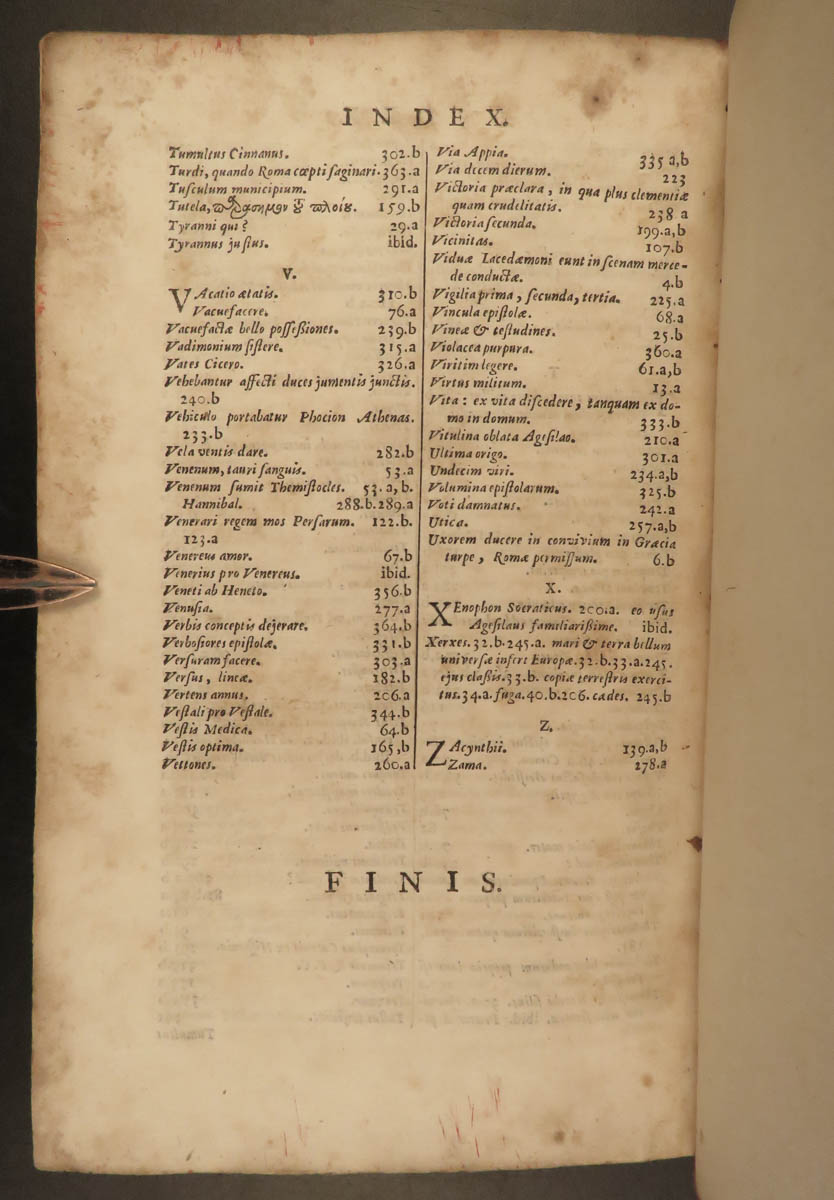 INDEX.
Tumultus Cinnanus. 302.b
Turdi, quando Roma cœpti ſaginari. 363.a
Tuſculum municipium. 291.a
Tutela, 159.b
Tyranni qui? 29.a
Tyrannus juſtus. ibid.
V.
VAcatio ætatis. 310.b
Vacuefacere. 76.a
Vacuefactæ bello poſſeßiones. 239.b
Vadimonium ſiſtere. 315.a
Vates Cicero. 326.a
Vehebantur affecti duces jumentis junctis.
240.b
Vehiculo portabatur Phocion Athenas.
233.b
Vela ventis dare. 282.b
Venenum, tauri ſanguis. 53.a
Venenum ſumit Themiſtocles. 53.a, b.
Hannibal. 288.b.289.a
Venerari regem mos Perſarum. 122.b.
123.a
Venereus amor. 67.b
Venerius pro Venereus. ibid.
Veneti ab Heneto. 356.b
Venuſia. 277.a
Verbis conceptis dejerare. 364.b
Verboſiores epiſtolæ. 331.b
Verſuram facere. 303.a
Verſus, lineæ. 182.b
Vertens annus. 206.a
Veſtali pro Veſtale. 344.b
Veſtis Medica. 64.b
Veſtis optima. 165,b
Vettones. 260.a
Via Appia. 335 a,b
Via decem dierum. 223
Victoria præclara, in qua plus clementiæ
quam crudelitatis. 238 a
Victoria ſecunda. 199.a,b
Vicinitas. 107.b
Viduæ Lacedæmoni eunt in ſcenam merce-
de conductæ. 4.b
Vigilia prima, ſecunda, tertia. 225.a
Vincula epiſtolæ. 68.a
Vineæ & teſtudines. 25.b
Violacea purpura. 360.a
Viritim legere. 61.a,b
Virtus militum. 13.a
Vita: ex vita diſcedere, tanquam ex do-
mo in domum. 333.b
Vitulina oblata Ageſilao. 210.a
Ultima origo. 301.a
Undecim viri. 234.a,b
Volumina epiſtolarum. 325.b
Voti damnatus. 242.a
Utica. 257.a,b
Uxorem ducere in convivium in Græcia
turpe, Romæ permiſſum. 6.b
X.
XEnophon Socraticus. 200.a. eo uſus
Ageſilaus familiarißime. ibid.
Xerxes. 32.b.245.a. mari & terra bellum
univerſæ infert Europæ. 32.b.33.a.245.
ejus claßis. 33.b. copiæ terreſtris exerci-
tus. 34.a. fuga. 40.b.206. cædes. 245.b
Z.
ZAcynthii. 139.a,b
Zama. 278.a
FINIS.